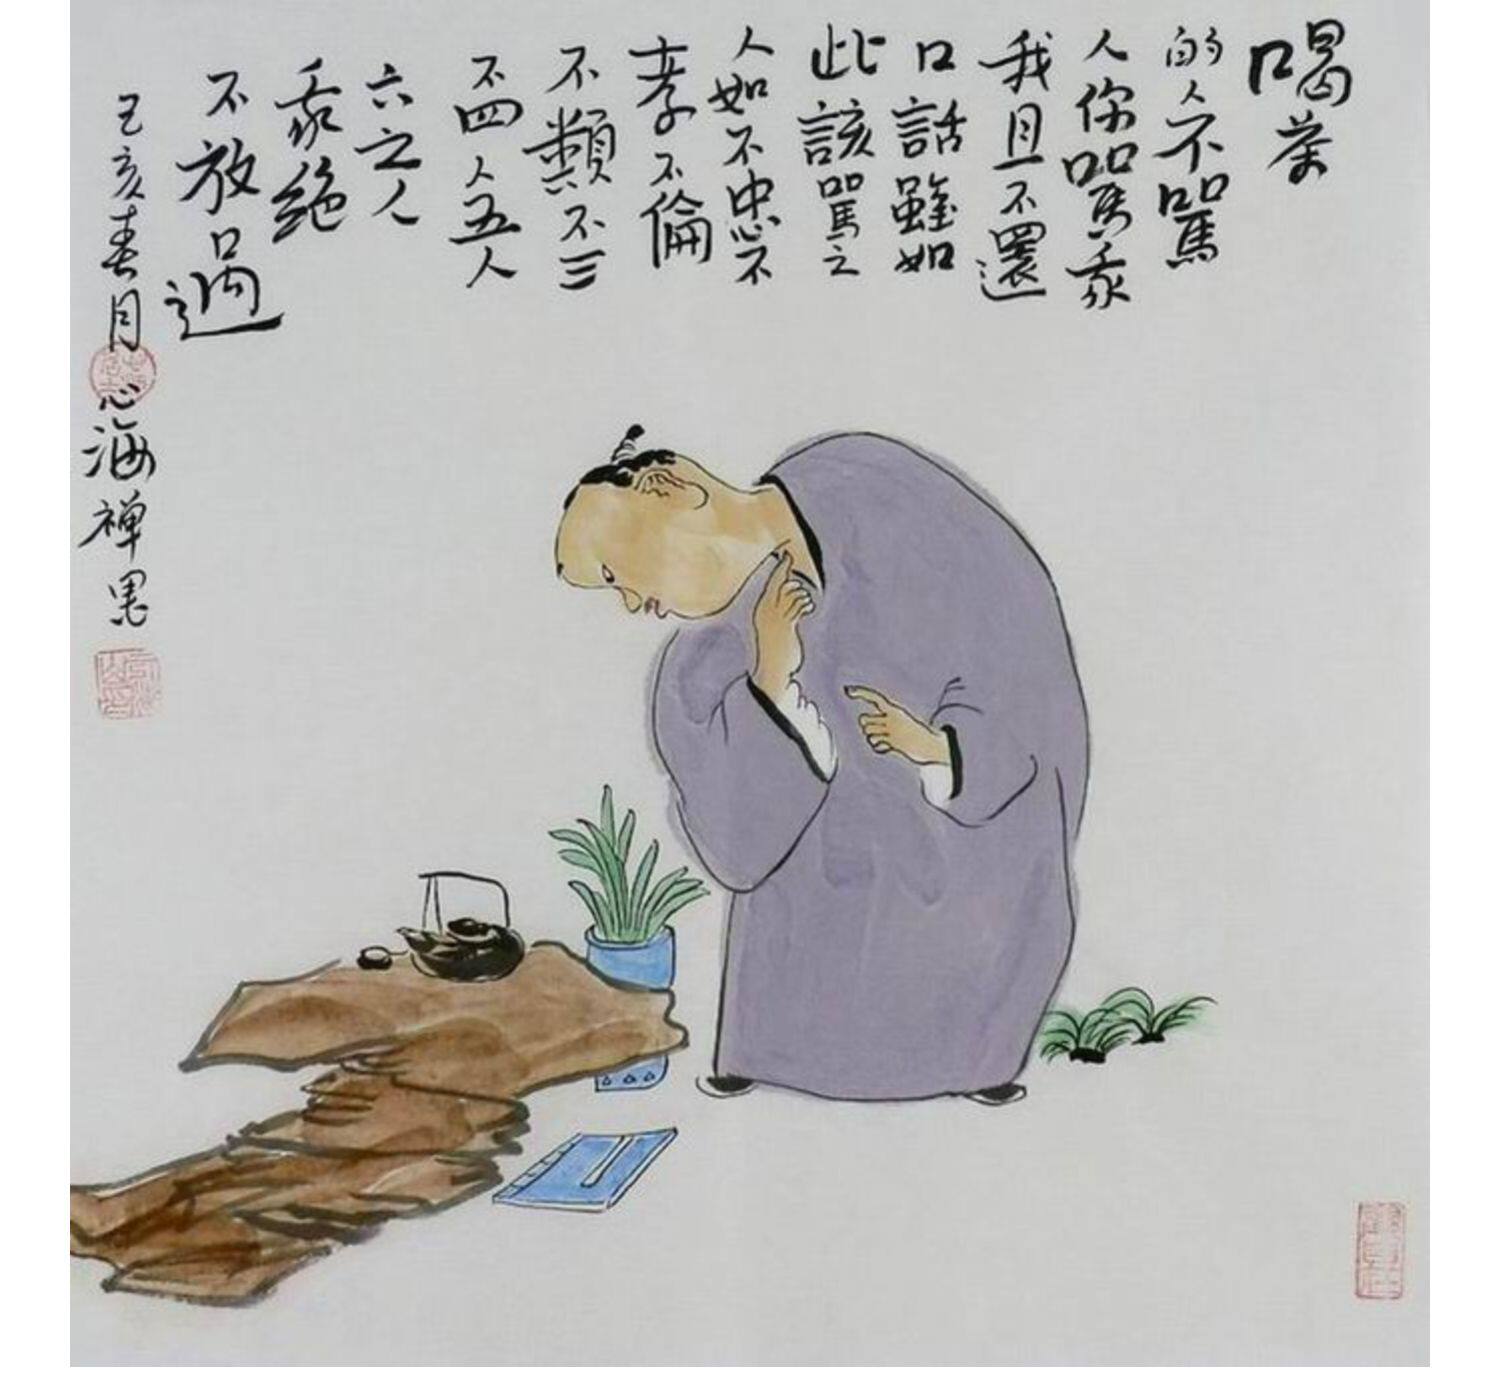 喝茶
的人不駡
人你駡我
我且不還
口話雖如
此該駡之
人如不忠不
孝不倫
不類不三
不四人五人
六之人
我絕
不放過
己亥春月
心海禅墨